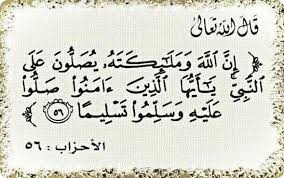 قال الله تعالى
﴿ إِنَّ ٱللَّهَ وَمَلَٰٓئِكَتَهُۥ يُصَلُّونَ عَلَى
ٱلنَّبِيِّۚ يَٰٓأَيُّهَا ٱلَّذِينَ ءَامَنُوا۟ صَلُّوا۟
عَلَيْهِ وَسَلِّمُوا۟ تَسْلِيمًا ٥٦ ﴾
الأحزاب : ٥٦